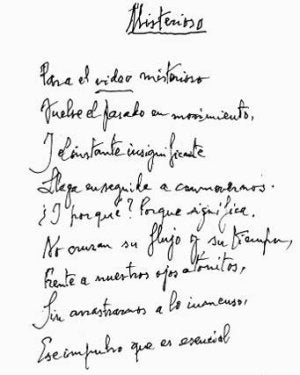 Misterioso
Para el video misterioso
Vuelve el pasado en movimiento,
Y el instante insignificante
Llega enseguida a conmovernos.
¿Y por qué? Porque significa.
No cruzan su flujo y su tiempo,
Frente a nuestros ojos atónitos,
Sin arrastrarnos a lo inmenso,
Ese impulso que es esencial